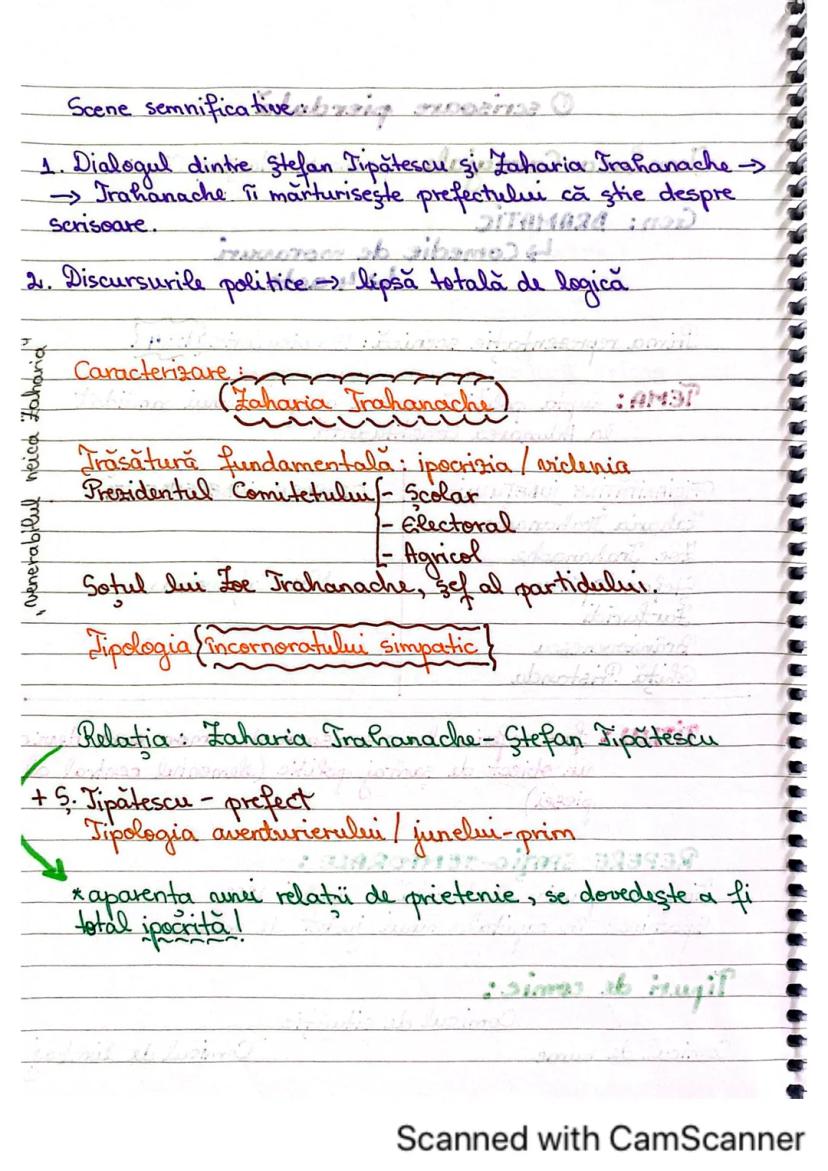 Scene semnificative:
1. Dialogul dintre Ștefan Tipătescu și Zaharia Trahanache →
→ Trahanache îi mărturisește prefectului că știe despre
scrisoare.
2. Discursurile politice → lipsă totală de logică
"venerabilul neica Zaharia"
Caracterizare:
Zaharia Trahanache
Trăsătură fundamentală: ipocrizia / viclenia
Prezidentul Comitetului - Școlar
- Electoral
- Agricol
Soțul lui Zoe Trahanache, șef al partidului.
Tipologia încornoratului simpatic
Relația Zaharia Trahanache - Ștefan Tipătescu
+ Ș. Tipătescu - prefect
Tipologia aventurierului / junelui-prim
*aparența unei relații de prietenie, se dovedește a fi
total ipocrită!
Scanned with CamScanner